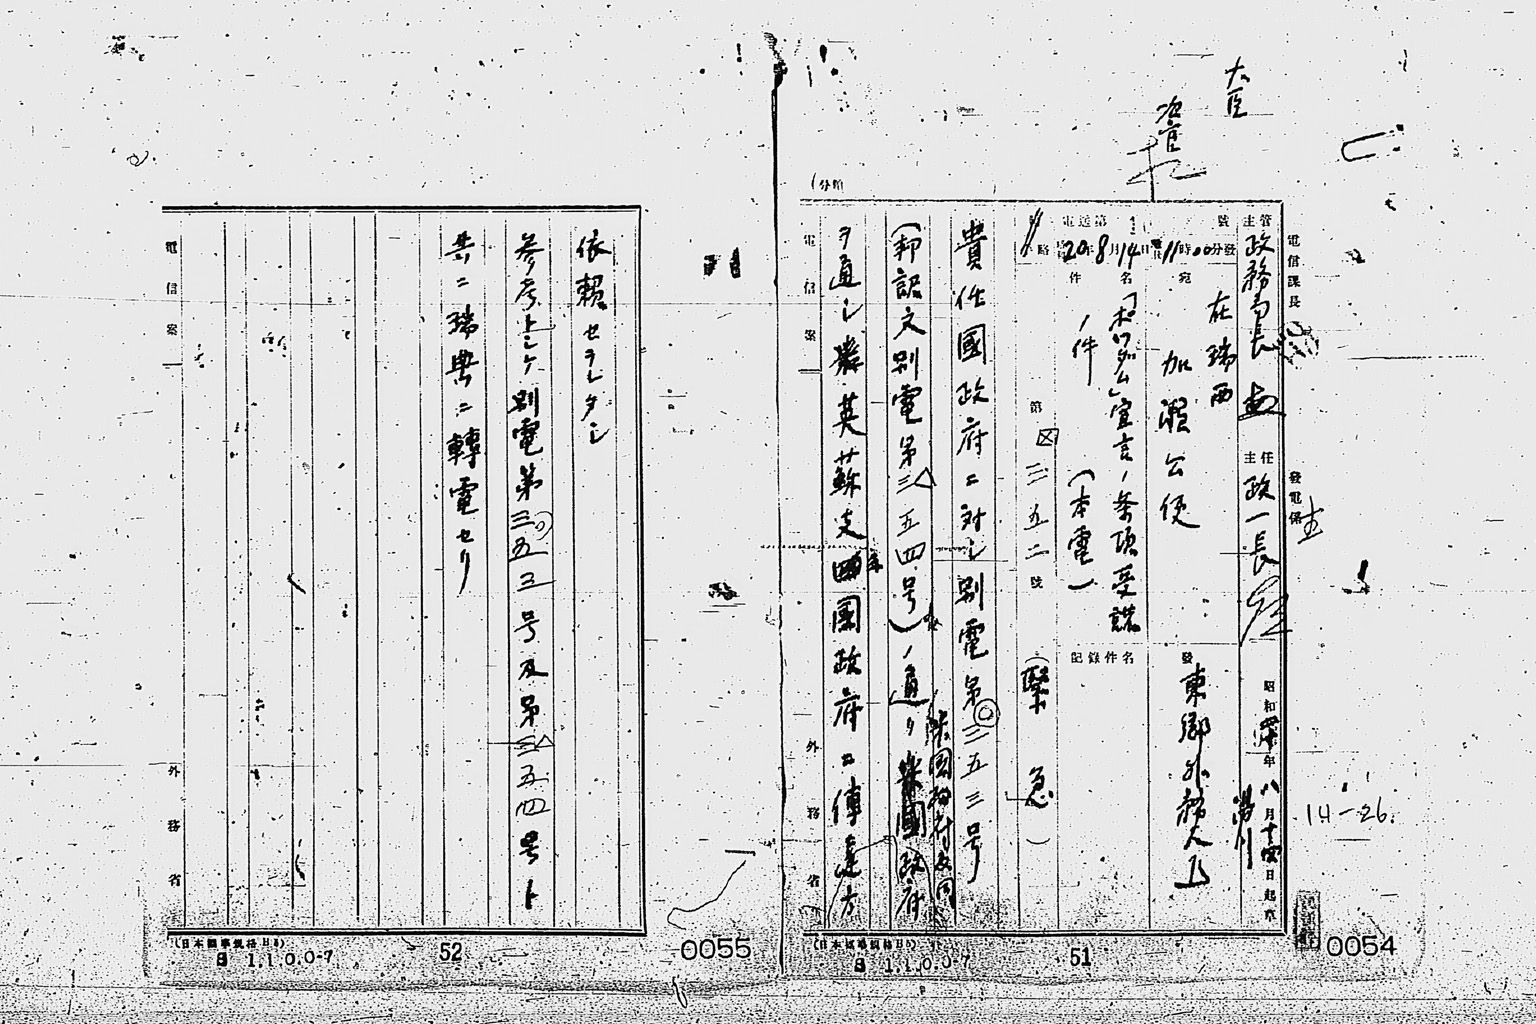 大臣
次官
分類
電信課長
發電係
主管
政務局長
主任
政一長
昭和
年八月十四日起草
14-26.
電送第
號
20年8月14日
11時00分發
宛
在瑞西
加瀬公使
發
東郷外務大臣
件名
「ポツダム」宣言ノ条項受諾
ノ件
(本電)
記録件名
第三五二號
(緊急)
貴任國政府ニ対シ別電第三五三号
(邦訳文別電第三五四号)ノ通リ米國政府
ヲ通シ英蘇支國政府ニ傳達方
電信案
外務省
(日本標準規格B5)
S 1.1.0.0-7
51
0054
依頼セラレタシ
参考トシテ別電第三五三号及第三五四号ト
共ニ瑞典ニ轉電セリ
電信案
外務省
(日本標準規格B5)
S 1.1.0.0-7
52
0055